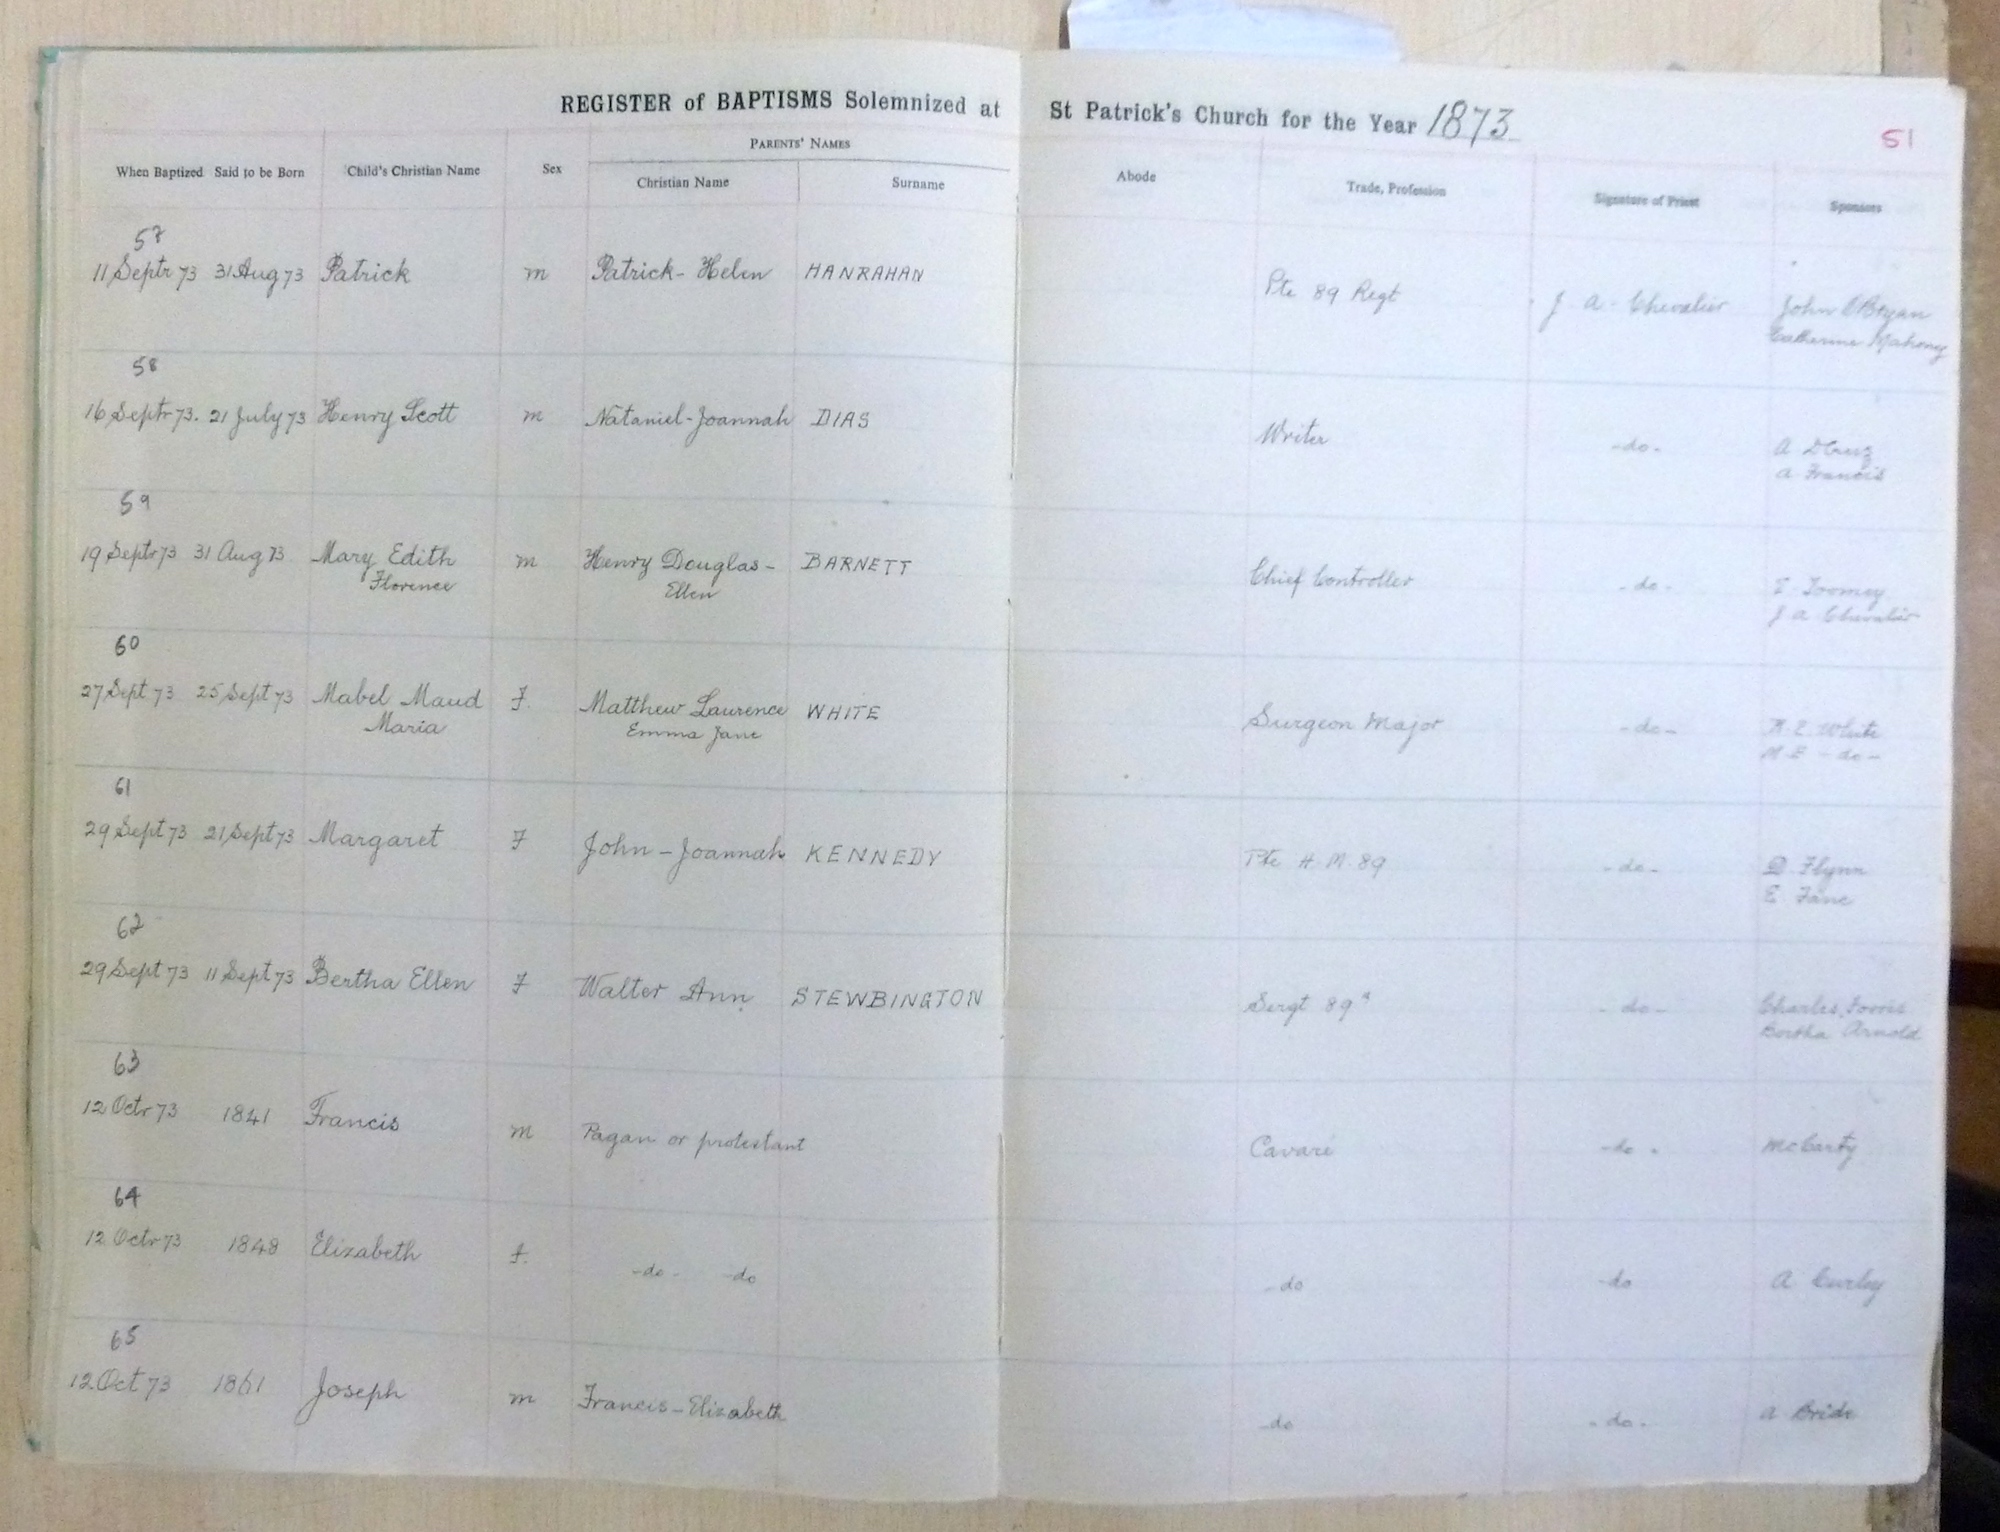 REGISTER of BAPTISMS Solemnized at St Patrick's Church for the Year 1873
51
PARENTS' NAMES
When Baptized Said to be Born Child's Christian Name Sex Christian Name Surname Abode Trade, Profession Signature of Priest Sponsors
57
11 Septr 73 31 Aug 73 Patrick m Patrick - Helen HANRAHAN Pte 89 Regt J A Chevalier John O'Bryan
Catherine Mahony
58
16 Septr 73. 21 July 73 Henry Scott m Nataniel - Joannah DIAS Writer -do- A DCruz
A Francis
59
19 Septr 73 31 Aug 73 Mary Edith m Henry Douglas - BARNETT Chief Controller -do- E Toomey
Florence Ellen J A Chevalier
60
27 Sept 73 25 Sept 73 Mabel Maud F. Matthew Laurence WHITE Surgeon Major -do- White
Maria Emma Jane M.E -do-
61
29 Sept 73 21 Sept 73 Margaret F John - Joannah KENNEDY Pte H.M. 89 -do- D Flynn
E Fane
62
29 Sept 73 11 Sept 73 Bertha Ellen F Walter Ann STEWBINGTON Sergt 89 -do- Charles
Bertha Arnold
63
12 Octr 73 1841 Francis m Pagan or protestant Cavaré -do- McCarty
64
12 Octr 73 1848 Elizabeth F. -do- -do -do -do A Curley
65
12 Oct 73 1861 Joseph m Francis - Elizabeth -do -do- A Bride